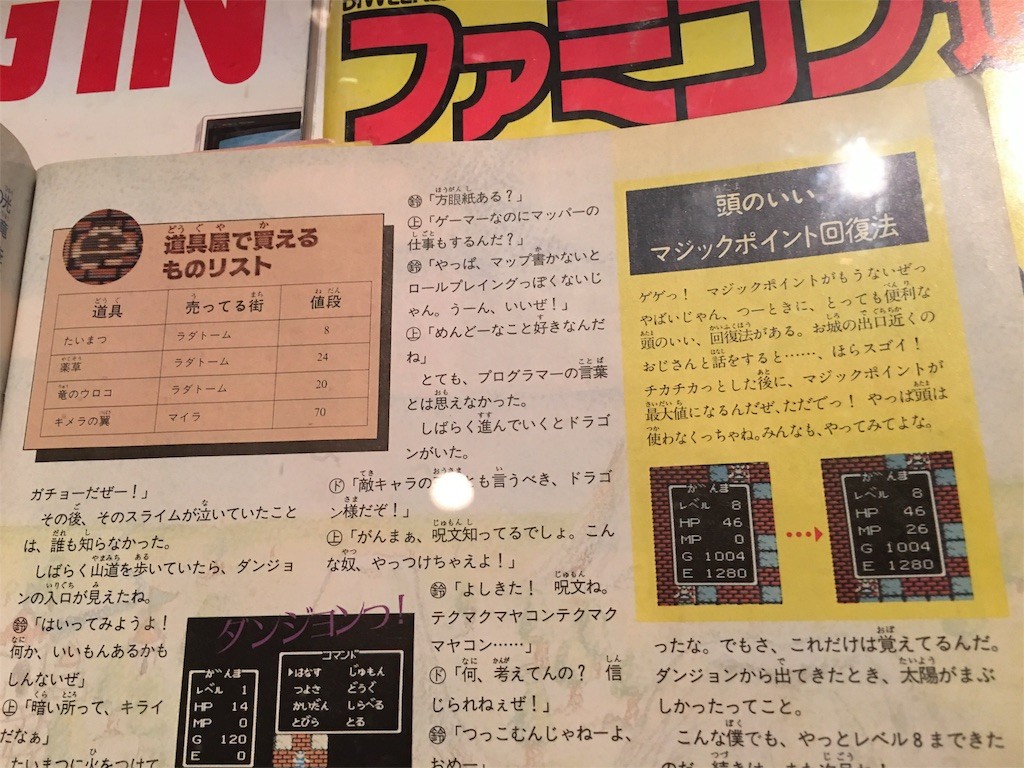 GIN
BIWEEKL
ファミコン
道具屋で買える
ものリスト
道具 売ってる街 値段
たいまつ ラダトーム 8
薬草 ラダトーム 24
竜のウロコ ラダトーム 20
ギメラの翼 マイラ 70
ガチョーだぜー!」
その後、そのスライムが泣いていたこと
は、誰も知らなかった。
しばらく山道を歩いていたら、ダンジョ
ンの入口が見えたね。
㊄「はいってみようよ!
何か、いいもんあるかも
しんないぜ」
㊤「暗い所って、キライ
だなぁ」
たいまつに火をつけて
ダンジョンっ!
がんま
レベル 1
HP 14
MP 0
G 120
E 0
コマンド
はなす じゅもん
つよさ どうぐ
かいだん しらべる
とびら とる
鈴「方眼紙ある?」
㊤「ゲーマーなのにマッパーの
仕事もするんだ?」
鈴「やっぱ、マップ書かないと
ロールプレイングっぽくないじ
ゃん。うーん、いいぜ!」
㊤「めんどーなこと好きなんだ
ね」
とても、プログラマーの言葉
とは思えなかった。
しばらく進んでいくとドラゴ
ンがいた。
ド「敵キャラの とも言うべき、ドラゴ
ン様だぞ!」
㊤「がんまぁ、呪文知ってるでしょ。こん
な奴、やっつけちゃえよ!」
鈴「よしきた! 呪文ね。
テクマクマヤコンテクマク
マヤコン……」
ド「何、考えてんの? 信
じられねぇぜ!」
鈴「つっこむんじゃねーよ、
おめー
頭のいい
マジックポイント回復法
ゲゲっ! マジックポイントがもうないぜっ
やばいじゃん、つーときに、とっても便利な
頭のいい、回復法がある。お城の出口近くの
おじさんと話をすると……、ほらスゴイ!
チカチカっとした後に、マジックポイントが
最大値になるんだぜ、ただでっ! やっぱ頭は
使わなくっちゃね。みんなも、やってみてよな。
がんま
レベル 8
HP 46
MP 0
G 1004
E 1280
がんま
レベル 8
HP 46
MP 26
G 1004
E 1280
ったな。でもさ、これだけは覚えてるんだ。
ダンジョンから出てきたとき、太陽がまぶ
しかったってこと。
こんな僕でも、やっとレベル8まできた